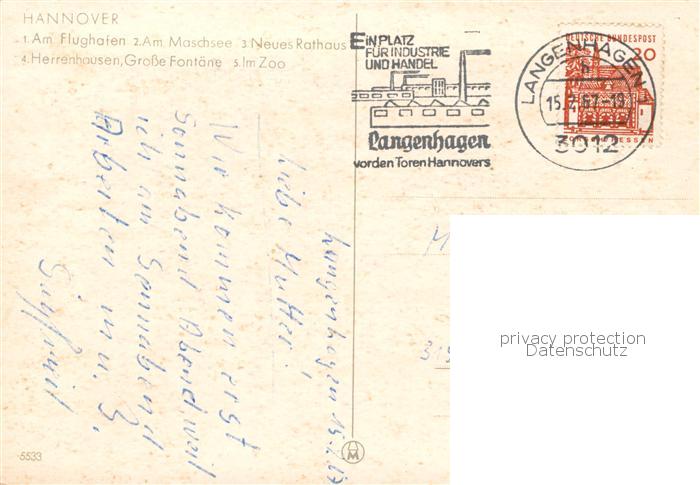 HANNOVER
1. Am Flughafen 2. Am Maschsee 3. Neues Rathaus
4. Herrenhausen, Große Fontäne 5. Im Zoo
EIN PLATZ
FÜR INDUSTRIE
UND HANDEL
Langenhagen
vor den Toren Hannovers
LANGENHAGEN
15.7.67-19
3012
DEUTSCHE BUNDESPOST
20
HESSEN
Langenhagen 15.7.67
Liebe Mutter!
Wir kommen erst
Sonnabend Abend, weil
ich am Sonnabend
Arbeiten mu. 3.
5533
M
privacy protection
Datenschutz